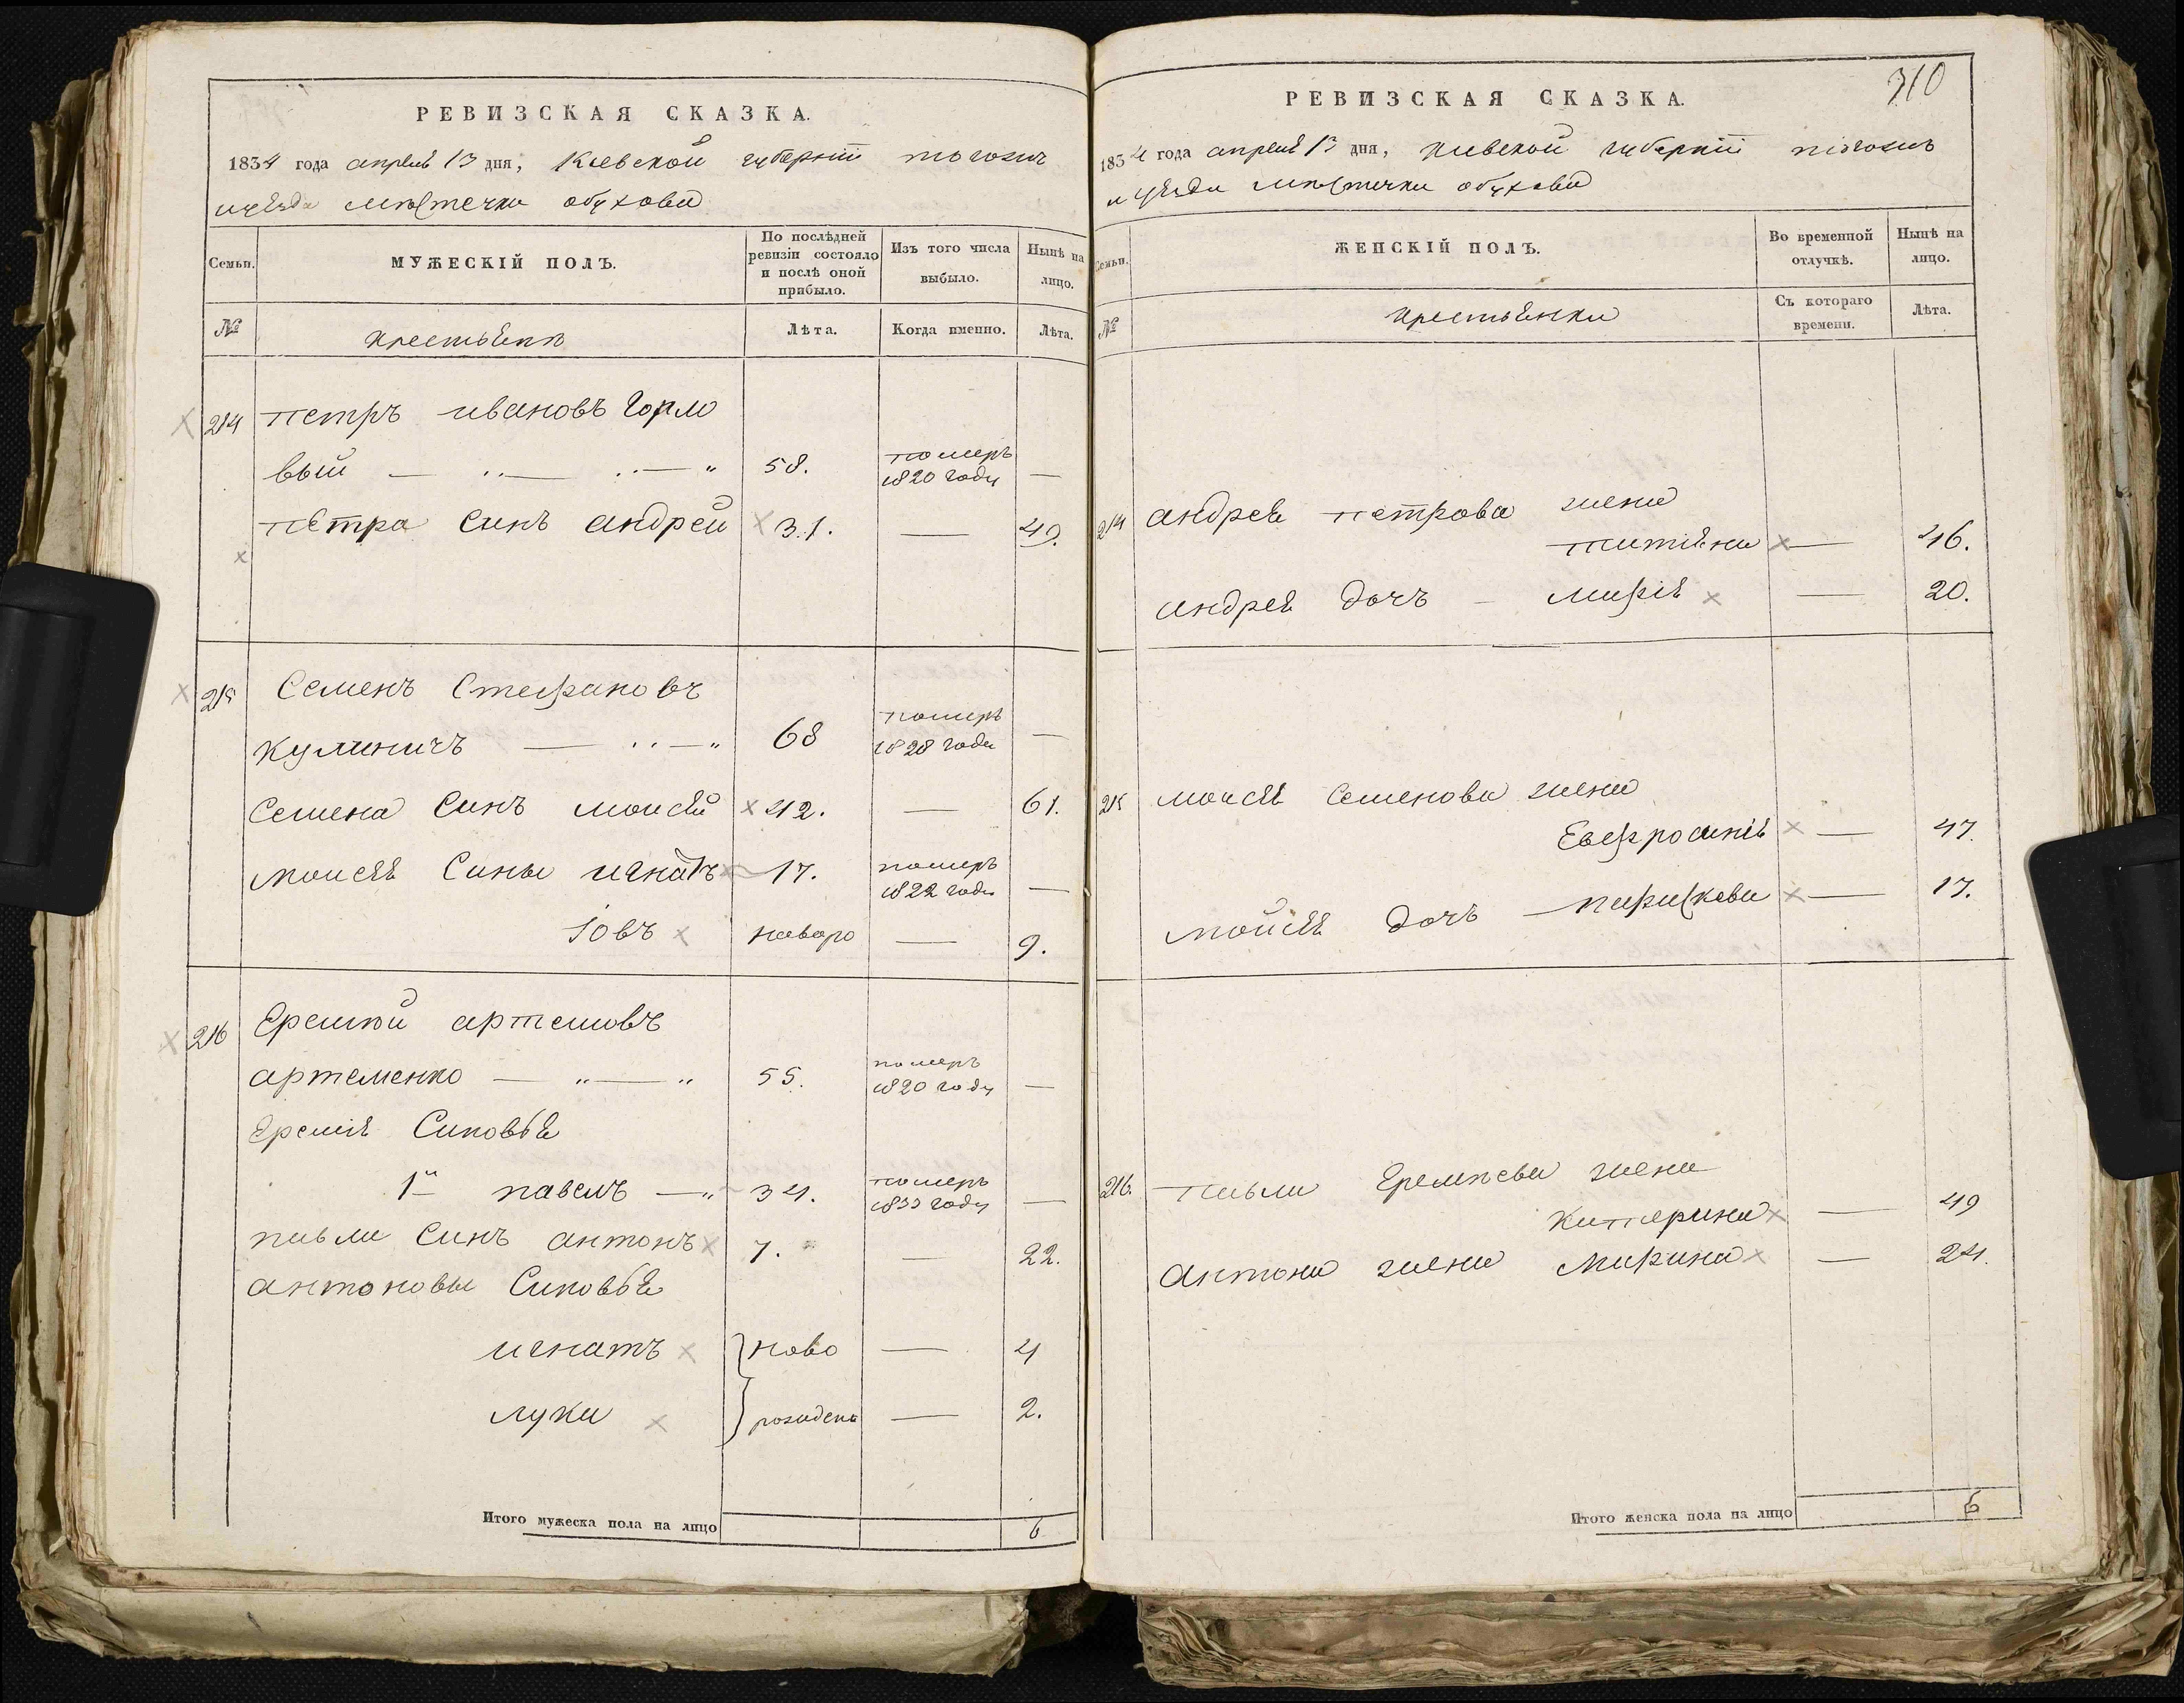 РЕВИЗСКАЯ СКАЗКА.
1834 года апреля 13 дня, Киевской губернiи тогожъ
уѣзда мѣстечка обухова
Семьи.
МУЖЕСКІЙ ПОЛЪ.
По послѣдней ревизіи состояло и послѣ оной прибыло.
Изъ того числа выбыло.
Нынѣ на лицо.
№
крестьянъ
Лѣта.
Когда именно.
Лѣта.
214 петръ ивановъ
вый — 58. померъ 1820 года —
петра синъ андрей 31. — 49.
215 Семенъ Стефановъ
кулиничъ — 68 померъ 1828 года —
Семена Синъ моисей 42. — 61.
моисея Сины игнатъ 17. померъ 1822 года —
Іовъ новоро — 9.
216 Еремѣй артемовъ
артеменко — 55. померъ 1820 году —
Еремія Синовья
1й павелъ — 34. померъ 1833 году —
павла Синъ антонъ 7. — 22.
антоновы Синовья
игнатъ ново — 4
лука рожденъ — 2.
Итого мужеска пола на лицо 6
310
РЕВИЗСКАЯ СКАЗКА.
1834 года апреля 13 дня, киевской губернiи тогожъ
уѣзда мѣстечка обухова
Семьи.
ЖЕНСКІЙ ПОЛЪ.
Во временной отлучкѣ.
Нынѣ на лицо.
№
крестьянки
Съ котораго времени.
Лѣта.
214 андрея петрова жена
татіяна — 46.
андрея дочъ — марія — 20.
215 моисея Семенова жена
Евфросинія — 47.
мойсея дочъ — параскева — 17.
216. павла Еремѣева жена
катерина — 49
антона жена марина — 24.
Итого женска пола на лицо 6